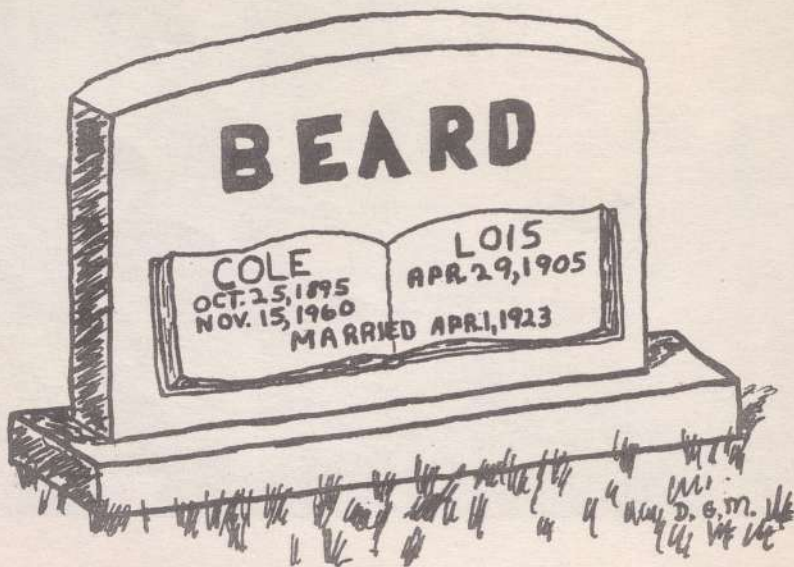 BEARD
COLE
OCT. 25, 1895
NOV. 15, 1960
LOIS
APR. 29, 1905
MARRIED APR. 1, 1923
D. G. M.